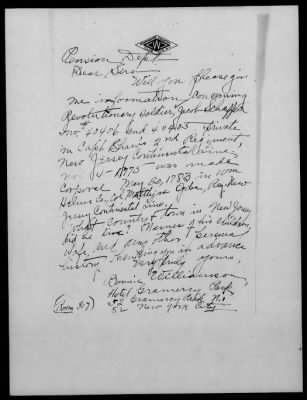 Pension Dept.
Dear Sirs
Will you please give
me information concerning
Revolutionary Soldier, Jacob
Inv. 40406 and 40405 private
in Capt. 2nd Regiment,
New Jersey Continental Line,
was made
Corporal May 20, 1783 in Wm
Helms Co. Col. Ogden, Reg. New
Jersey Continental Line.
What County, town in New Jersey
did he live? Names of his children,
wife and any other persons
Thanking you in advance
Very truly yours,
Williamson,
Hotel Gramercy Park
Gramercy Park N.
52 New York City